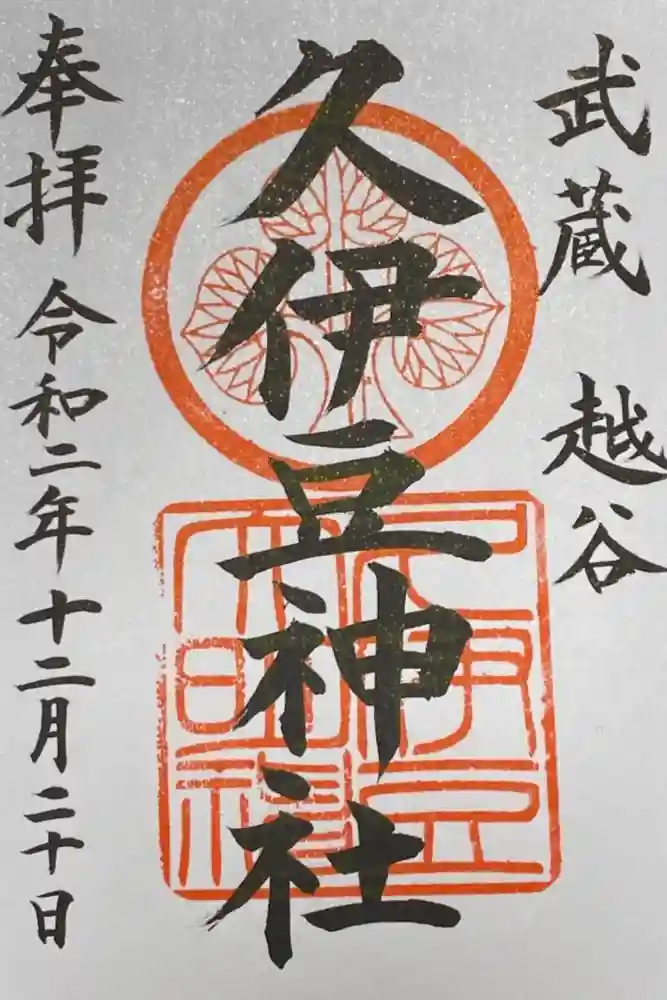 武蔵 越谷
久伊豆神社
奉拝 令和二年十二月二十日